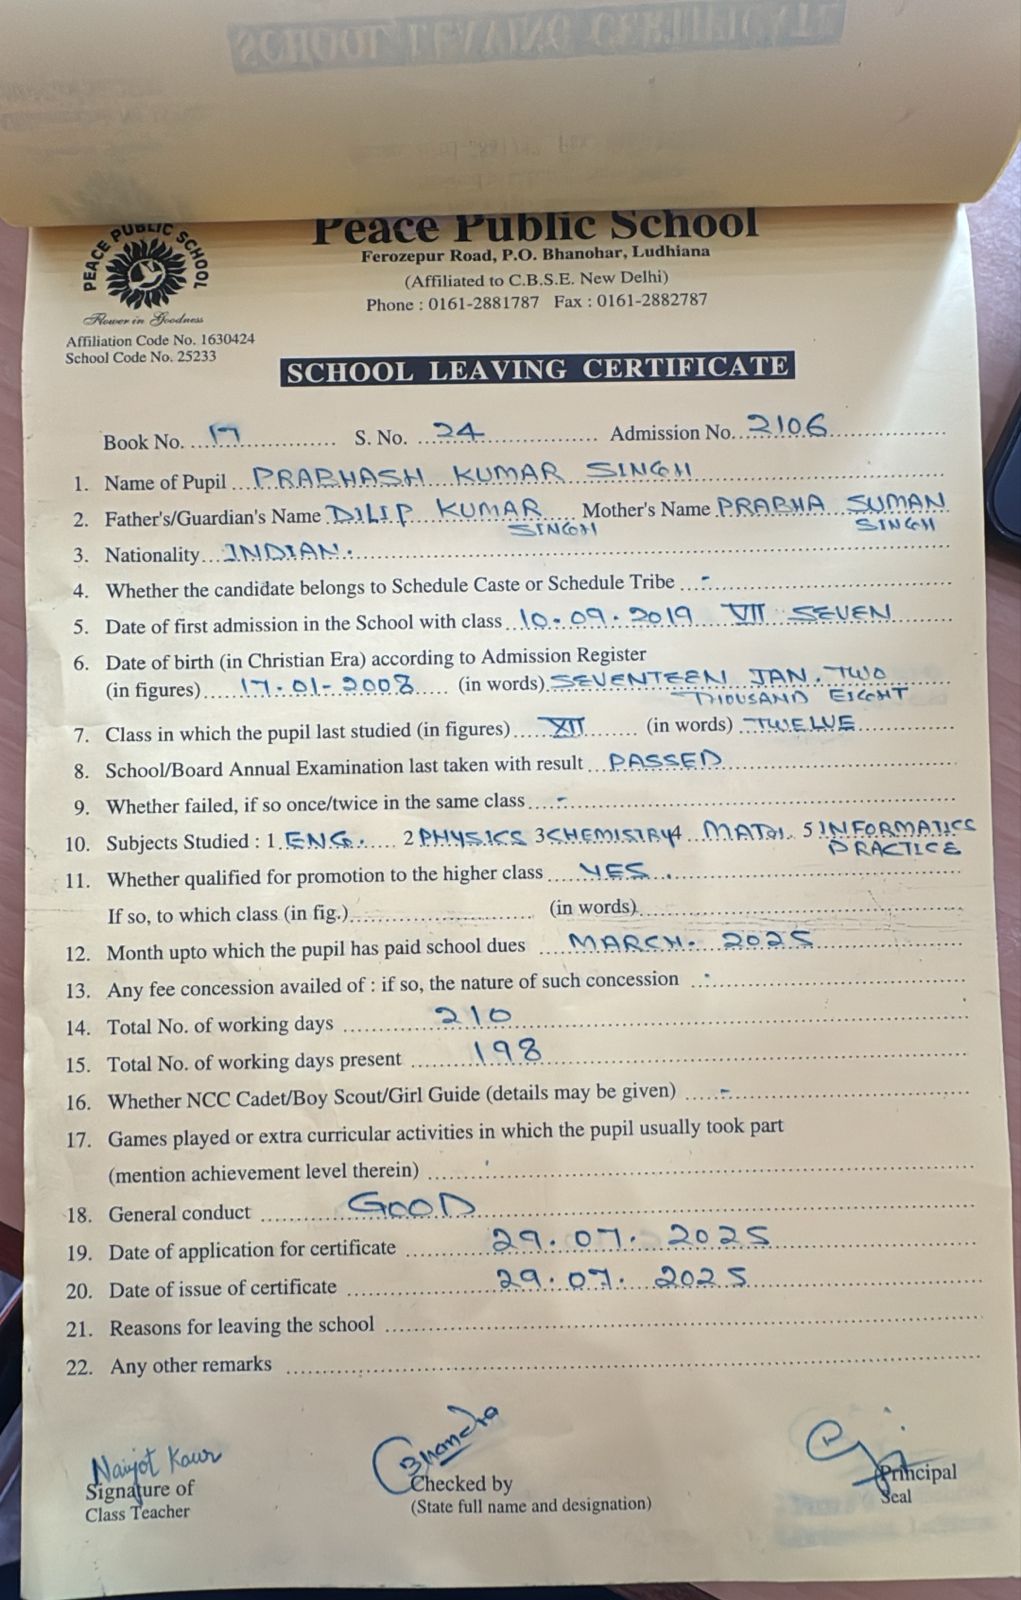 SCHOOL LEAVING CERTIFICATE
Peace Public School
PEACE PUBLIC SCHOOL
Ferozepur Road, P.O. Bhanohar, Ludhiana
(Affiliated to C.B.S.E. New Delhi)
Phone : 0161-2881787 Fax : 0161-2882787
Flower in Goodness
Affiliation Code No. 1630424
School Code No. 25233
SCHOOL LEAVING CERTIFICATE
Book No. 17 S. No. 24 Admission No. 2106
1. Name of Pupil PRABHASH KUMAR SINGH
2. Father's/Guardian's Name DILIP KUMAR SINGH Mother's Name PRABHA SUMAN SINGH
3. Nationality INDIAN.
4. Whether the candidate belongs to Schedule Caste or Schedule Tribe -
5. Date of first admission in the School with class 10.09.2019 VII SEVEN
6. Date of birth (in Christian Era) according to Admission Register
(in figures) 17-01-2008 (in words) SEVENTEEN JAN. TWO THOUSAND EIGHT
7. Class in which the pupil last studied (in figures) XII (in words) TWELVE
8. School/Board Annual Examination last taken with result PASSED
9. Whether failed, if so once/twice in the same class -
10. Subjects Studied : 1 ENG. 2 PHYSICS 3 CHEMISTRY 4 MATH. 5 INFORMATICS PRACTICE
11. Whether qualified for promotion to the higher class YES.
If so, to which class (in fig.) (in words)
12. Month upto which the pupil has paid school dues MARCH. 2025
13. Any fee concession availed of : if so, the nature of such concession -
14. Total No. of working days 210
15. Total No. of working days present 198
16. Whether NCC Cadet/Boy Scout/Girl Guide (details may be given) -
17. Games played or extra curricular activities in which the pupil usually took part
(mention achievement level therein)
18. General conduct GOOD
19. Date of application for certificate 29.07.2025
20. Date of issue of certificate 29.07.2025
21. Reasons for leaving the school
22. Any other remarks
Navjot Kaur
Signature of
Class Teacher
Bhandra
Checked by
(State full name and designation)
Principal
Seal